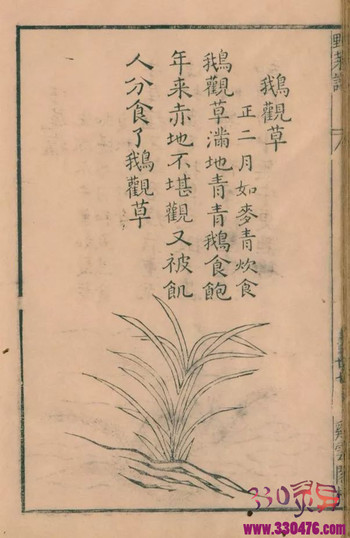 鵝觀草
正二月如麥青炊食
鵝觀草滿地青青鵝食飽
年来赤地不堪觀又被飢
人分食了鵝觀草
野菜譜
www.330476.com